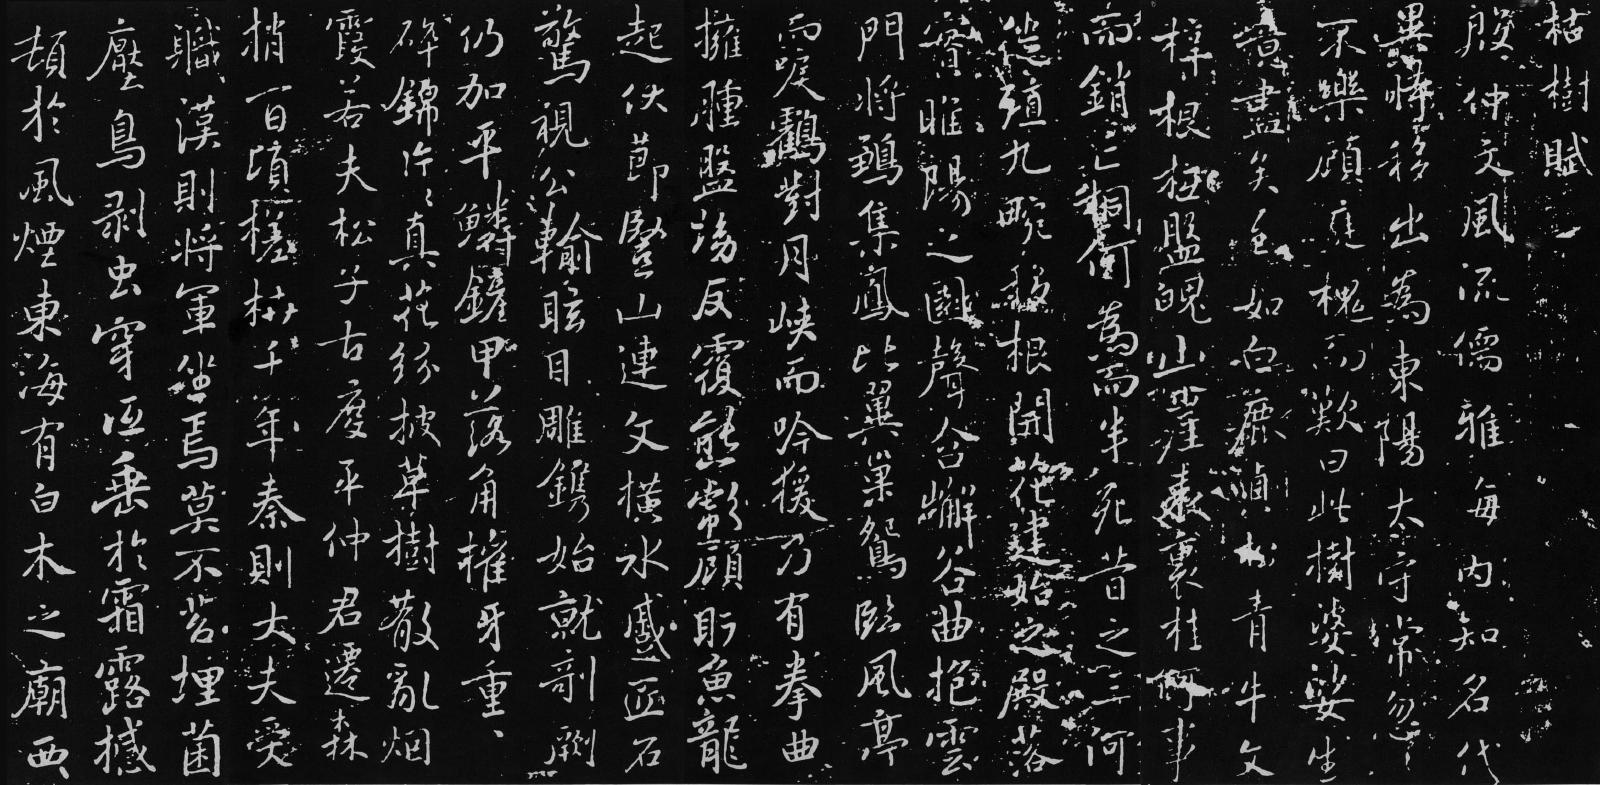 枯樹賦
殷仲文風流儒雅海內知名代
異時移出為東陽太守常忽〻
不樂顧庭槐而歎曰此樹婆娑生
意盡矣至如白鹿貞松青牛文
梓根柢盤魄山崖表裏桂何事
而銷亡桐何為而半死昔之三河
徙殖九畹移根開花建始之殿落
實睢陽之園聲含嶰谷曲抱雲
門將鶵集鳳比翼巢鴛臨風亭
而唳鶴對月峽而吟猨乃有拳曲
擁腫盤坳反覆熊彪顧盼魚龍
起伏節豎山連文橫水蹙匠石
驚視公輸眩目雕鐫始就剞劂
仍加平鱗鏟甲落角摧牙重〻
碎錦片〻真花紛披草樹散亂烟
霞若夫松子古度平仲君遷森
梢百頃槎枿千年秦則大夫受
職漢則將軍坐焉莫不苔埋菌
壓鳥剝虫穿低垂於霜露撼
頓於風煙東海有白木之廟西